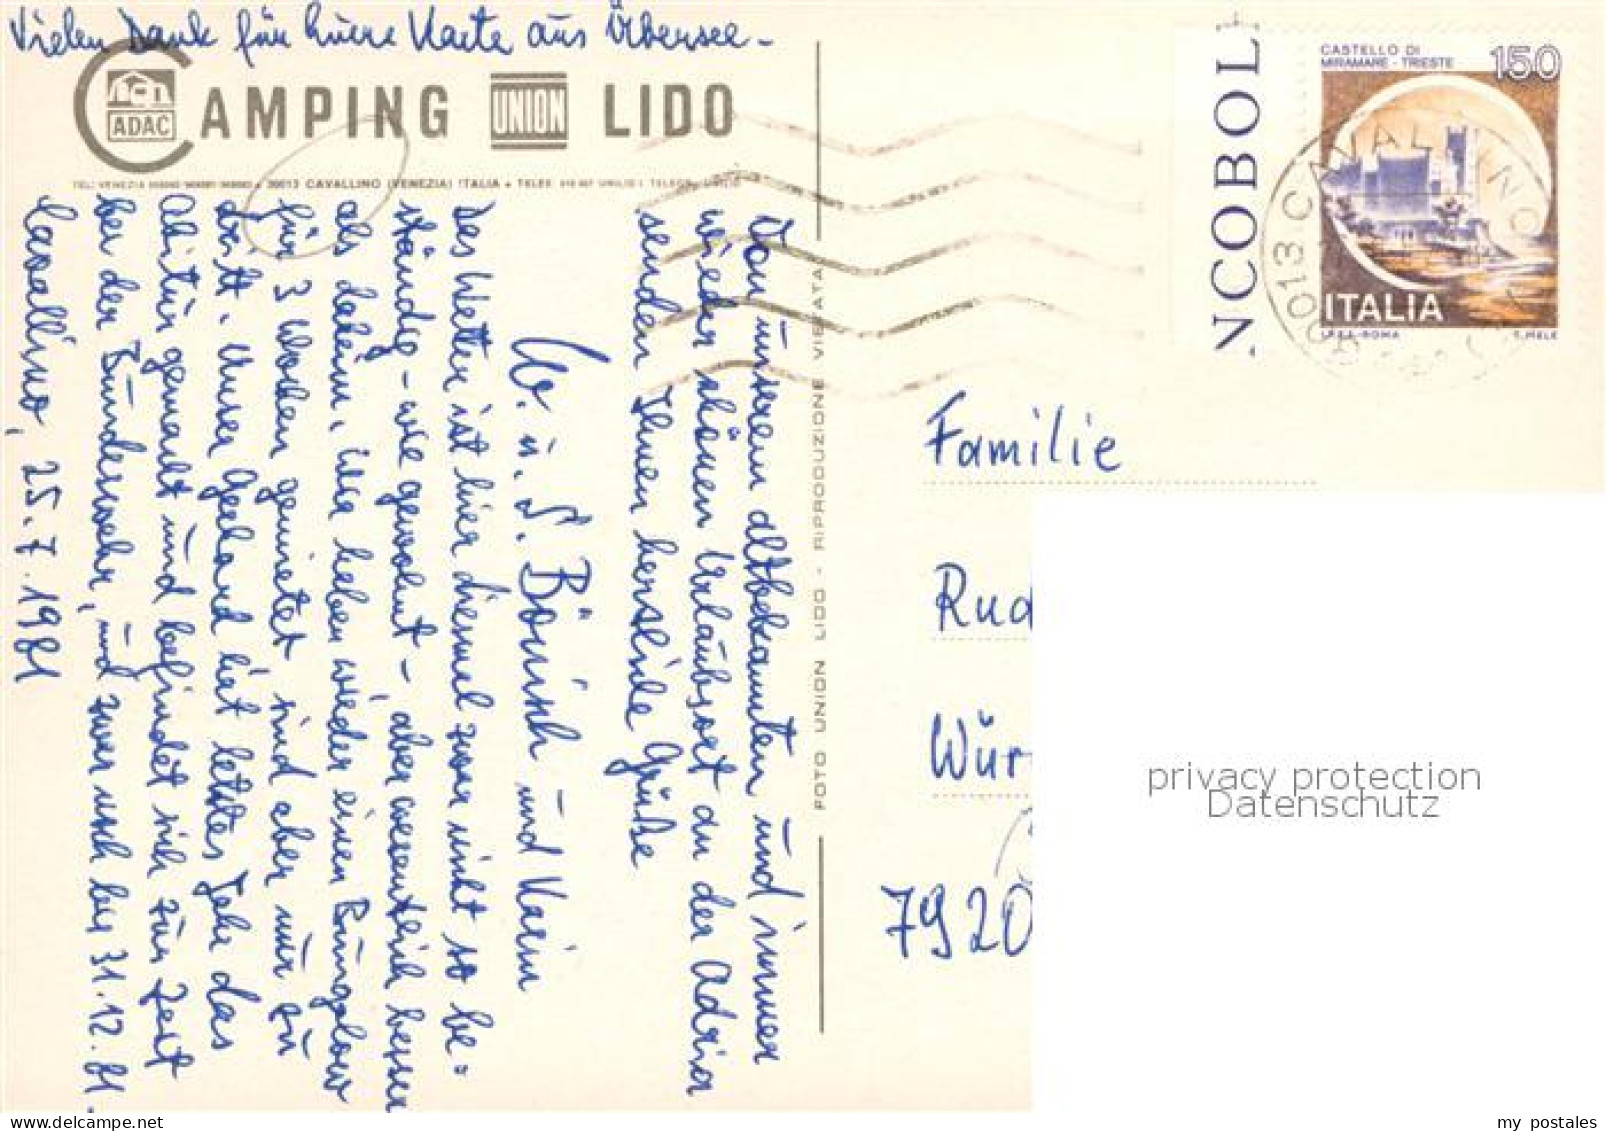 Vielen Dank für Euere Karte aus Übersee -
CAMPING UNION LIDO
ADAC
30013 CAVALLINO (VENEZIA) ITALIA
Von unserem altbekannten und immer
wieder schönen Urlaubsort an der Adria
senden Ihnen herzliche Grüße
W. u. S. Bönisch und Karin
Das Wetter ist hier diesmal zwar nicht so be=
ständig - wie gewohnt -, aber wesentlich besser
als daheim. Wir haben wieder einen Bungalow
für 3 Wochen gemietet, sind aber nur zu
dritt. Unser Gerhard hat letztes Jahr das
Abitur gemacht und befindet sich zur Zeit
bei der Bundeswehr, und zwar noch bis 31.12.81.
Cavallino, 25.7.1981
FOTO UNION LIDO - RIPRODUZIONE VIETATA
NCOBOL
CASTELLO DI
MIRAMARE - TRIESTE
150
ITALIA
I.P.Z.S. - ROMA
E. MELE
30013 CAVALLINO
Familie
Rud
Wür
7920
privacy protection
Datenschutz
my postales